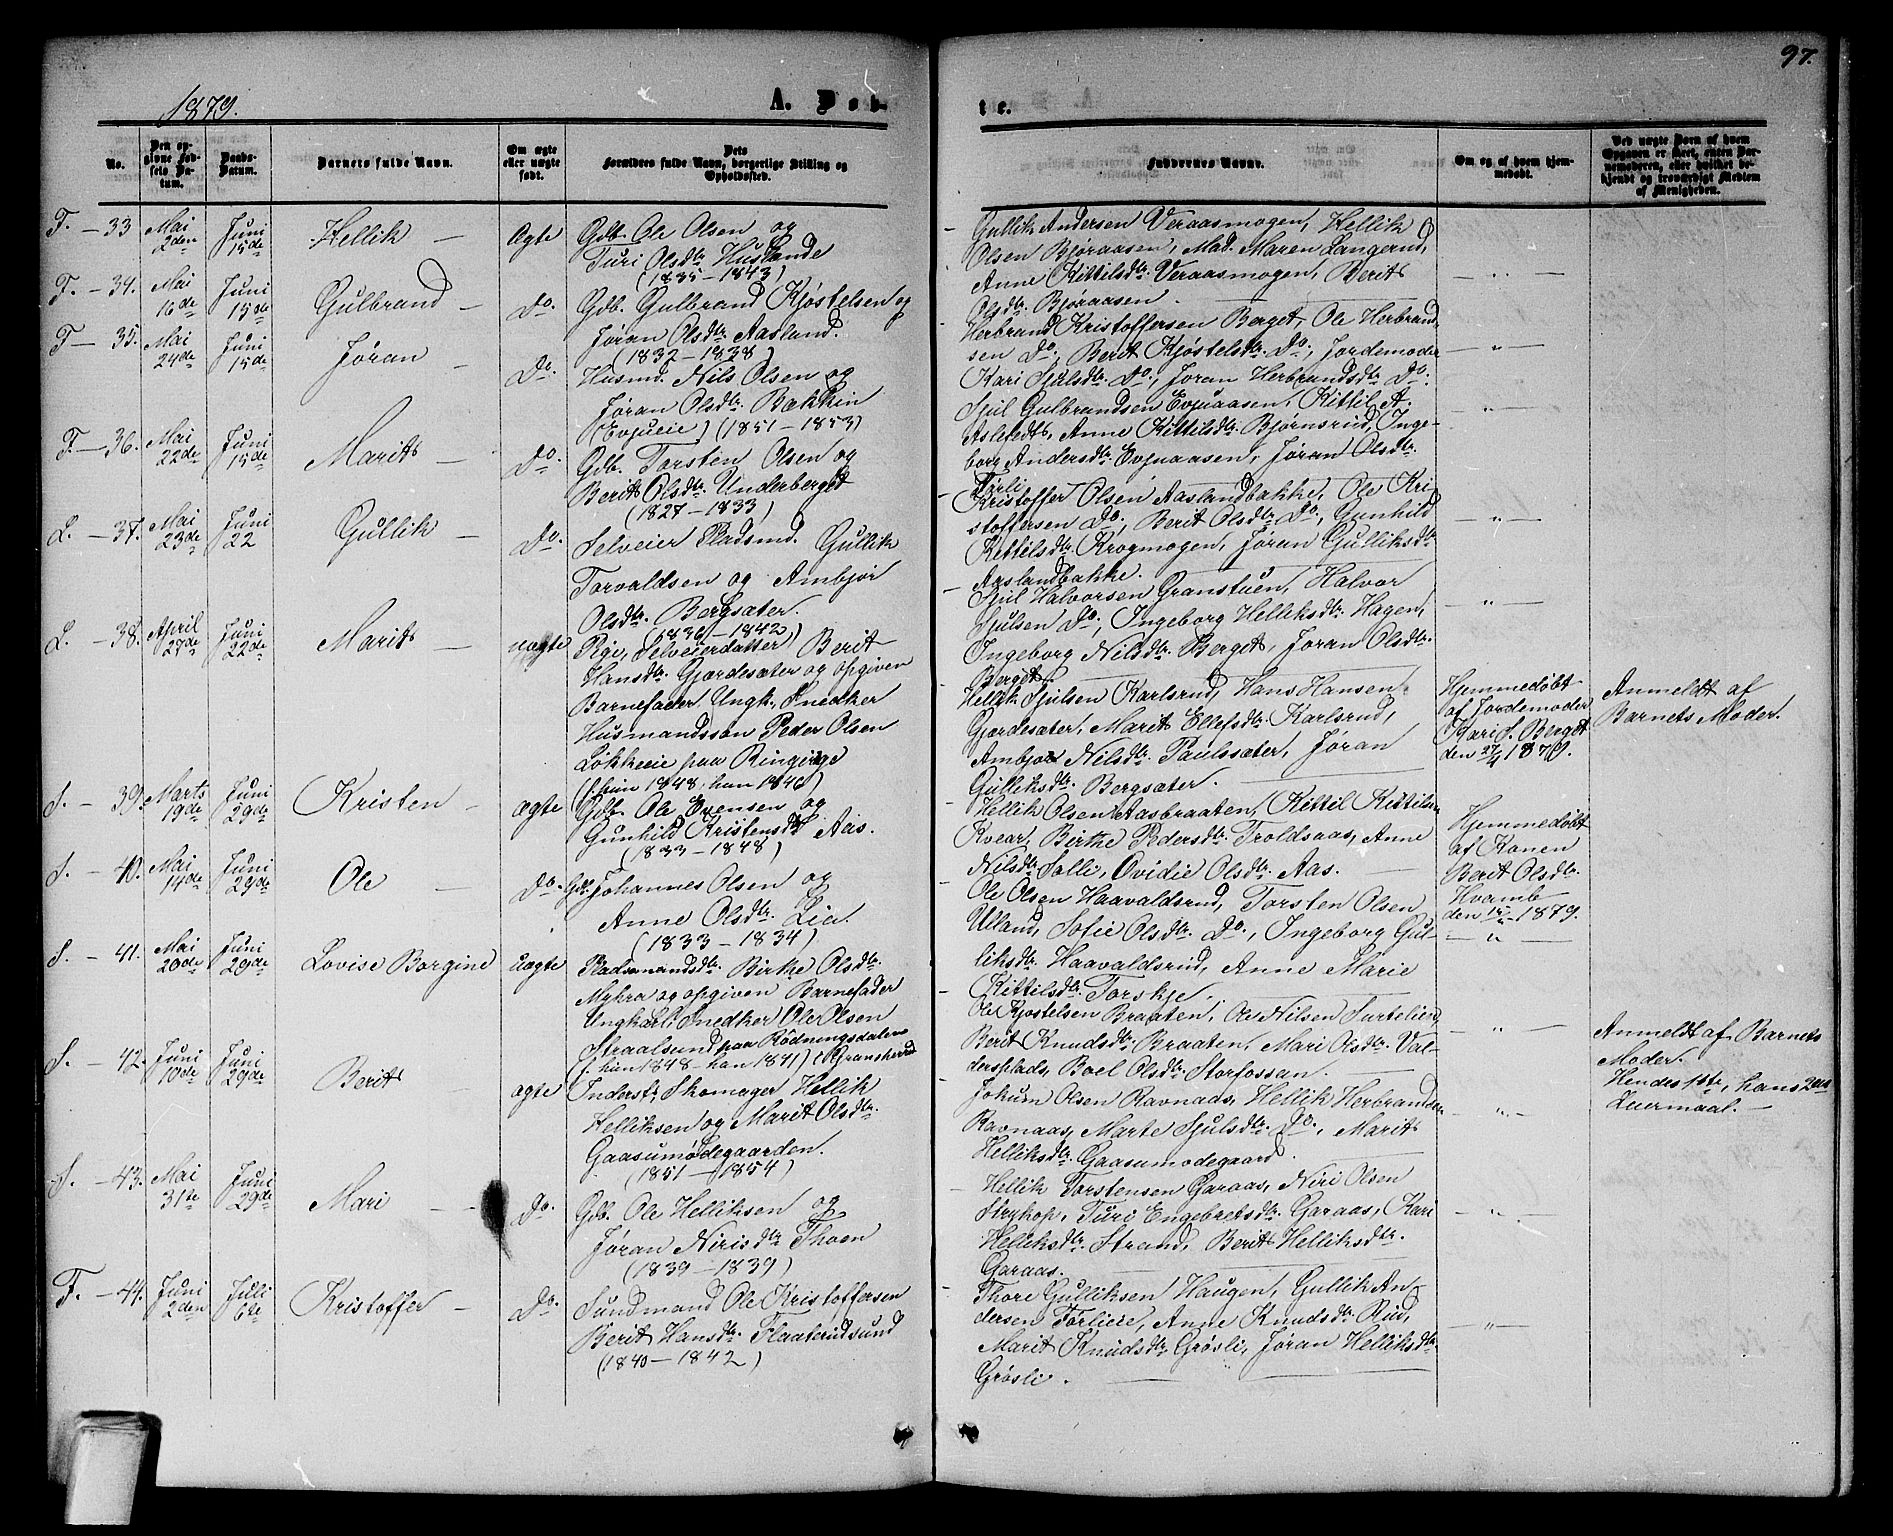 97.
1879.
A. Døb-
te.
No.
Den op-
givne Fød-
sels Da-
tum.
Daabs-
Datum.
Barnets fulde Navn.
Om ægte
eller uægte
født.
Dets
Forældres fulde Navn, borgerlige Stilling og
Opholdssted.
Faddernes Navne.
Om og af hvem hjem-
medøbt.
Ved uægte Børn af hvem
Opgaven er skeet, enten Bar-
nemoderen, eller hvilket be-
kjendt og troværdigt Medlem
af Menigheden.
F. - 33
Mai
2den
Juni
15de
Hellik
Ægte
Gdb. Ole Olsen og
Turi Olsdtr. Huslande
(1835 - 1843)
Gullik Andersen Veraasmogen, Hellik
Olsen Bjøraasen, Mad. Maren Langerud,
Anne Kittilsdtr. Veraasmogen, Berit
Olsdtr. Bjøraasen.
F. - 34.
Mai
16de
Juni
15de
Gulbrand
Do.
Gdb. Gulbrand Kjøstelsen og
Jøran Olsdtr. Aasland.
(1832 - 1838)
Herbrand Kristoffersen Berget, Ole Herbrand-
sen Do., Berit Kjøstelsdtr. Do., Jordemoder
Kari Sjulsdtr. Do., Jøran Herbrandsdtr. Do.
F - 35.
Mai
24de
Juni
15de
Jøran
Do.
Husmd. Nils Olsen og
Jøran Olsdtr. Bækkin
(Evjueie) (1851 - 1853)
Sjul Gulbrandsen Evjuaasen, Kittil A.
Asletedt, Anne Kittilsdtr. Bjørnsrud, Inge-
borg Andersdtr. Evjuaasen, Jøran Olsdtr.
Tørli
F. - 36.
Mai
22de
Juni
15de
Marit
Do.
Gdb. Torsten Olsen og
Berit Olsdtr. Underberget
(1827 - 1833)
Kristoffer Olsen Aaslandbakke, Ole Kri
stoffersen Do., Berit Olsdtr. Do., Gunhild
Kittilsdtr. Krogmogen, Jøran Gulliksdtr.
Aaslandbakke.
L. - 37.
Mai
23de
Juni
22
Gullik
Do.
Selveier Pladsmd. Gullik
Torvaldsen og Ambjør
Olsdtr. Bergsæter.
(1836 - 1842)
Sjul Halvorsen Granstuen, Halvor
Sjulsen Do., Ingeborg Helliksdtr. Hagen,
Ingeborg Nilsdtr. Berget, Jøran Olsdtr.
Berget.
L. - 38.
April
27de
Juni
22de
Marit
uægte
Pige, Selveierdatter Berit
Hansdtr. Gjærdesæter og opgiven
Barnefader Ungk. Snedker
Husmandssøn Peder Olsen
Løkkeeie paa Ringerige
(f. hun 1848, han 1846)
Hellik Sjulsen Karlsrud, Hans Hansen
Gjærdesæter, Marit Ellefsdtr. Karlsrud,
Ambjør Nilsdtr. Paulssæter, Jøran
Gulliksdtr. Bergsæter.
Hjemmedøbt
af Jordemoder
Kari S. Berget
den 27/4 1879.
Anmeldt af
Barnets Moder.
S. - 39.
Marts
19de
Juni
29de
Kristen
ægte
Gdb. Ole Evensen og
Gunhild Kristensdtr. Aas.
(1833 - 1848)
Hellik Olsen Aasbraaten, Kittil Kittilsen
Kvear, Birthe Pedersdtr. Troldsaas, Anne
Nilsdtr. Solli, Ovidie Olsdtr. Aas.
Hjemmedøbt
af Konen
Berit Olsdtr.
Hvamb
den 1879.
S. - 40.
Mai
14de
Juni
29de
Ole
Do.
Gdb. Johannes Olsen og
Anne Olsdtr. Lia.
(1833 - 1834)
Ole Olsen Haavaldsrud, Torsten Olsen
Ulland, Sofie Olsdtr. Do., Ingeborg Gul-
liksdtr. Haavaldsrud, Anne Marie
Kittilsdtr. Torskje.
S. - 41.
Mai
20de
Juni
29de
Lovise Borgine
uægte
Pladsmandsdtr. Birthe Olsdtr.
Myhra og opgiven Barnefader
Ungkarl, Snedker Ole Olsen
Straalsund paa Rødningsdalene
f. hun 1848 - han 1841) i Gransherred
Ole Kjøstelsen Braaten, Ole Nilsen Surtelien,
Berit Knudsdtr. Braaten, Mari Olsdtr. Val-
dersplads, Boel Olsdtr. Storfossan.
Anmeldt af Barnets
Moder.
Hendes 1ste, hans 2det
Leiermaal.
S. - 42.
Juni
10de
Juni
29de
Berit
ægte
Inderst, Skomager Hellik
Helliksen og Marit Olsdtr.
Gaasumødegaarden.
(1851 - 1854)
Jokum Olsen Ravnaas, Hellik Herbrandsen
Ravnaas, Marte Sjulsdtr. Do., Marit
Helliksdtr. Gaasumodegaard.
S. - 43.
Mai
31te
Juni
29de
Mari
Do.
Gdb. Ole Helliksen og
Jøran Nirisdtr. Thoen
(1839 - 1839)
Hellik Torstensen Garaas, Niri Olsen
Strykop, Turi Engebretsdtr. Garaas, Kari
Helliksdtr. Strand, Berit Helliksdtr.
Garaas.
F. - 44.
Juni
2den
Juli
6te
Kristoffer
Do.
Sundmand Ole Kristoffersen
Berit Hansdtr. Flaaterudsund
(1840 - 1842)
Thore Gulliksen Haugen, Gullik An-
dersen Tørliere, Anne Knudsdtr. Rud,
Marit Knudsdtr. Grøsli, Jøran Helliksdtr.
Grøsli.